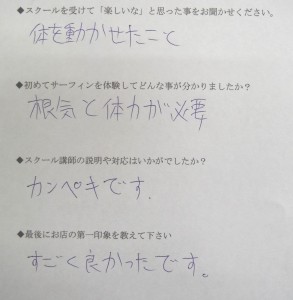 ◆スクールを受けて「楽しいな」と思った事をお聞かせください。
体を動かせたこと
◆初めてサーフィンを体験してどんな事が分かりましたか？
根気と体力が必要
◆スクール講師の説明や対応はいかがでしたか？
カンペキです.
◆最後にお店の第一印象を教えて下さい
すごく良かったです。